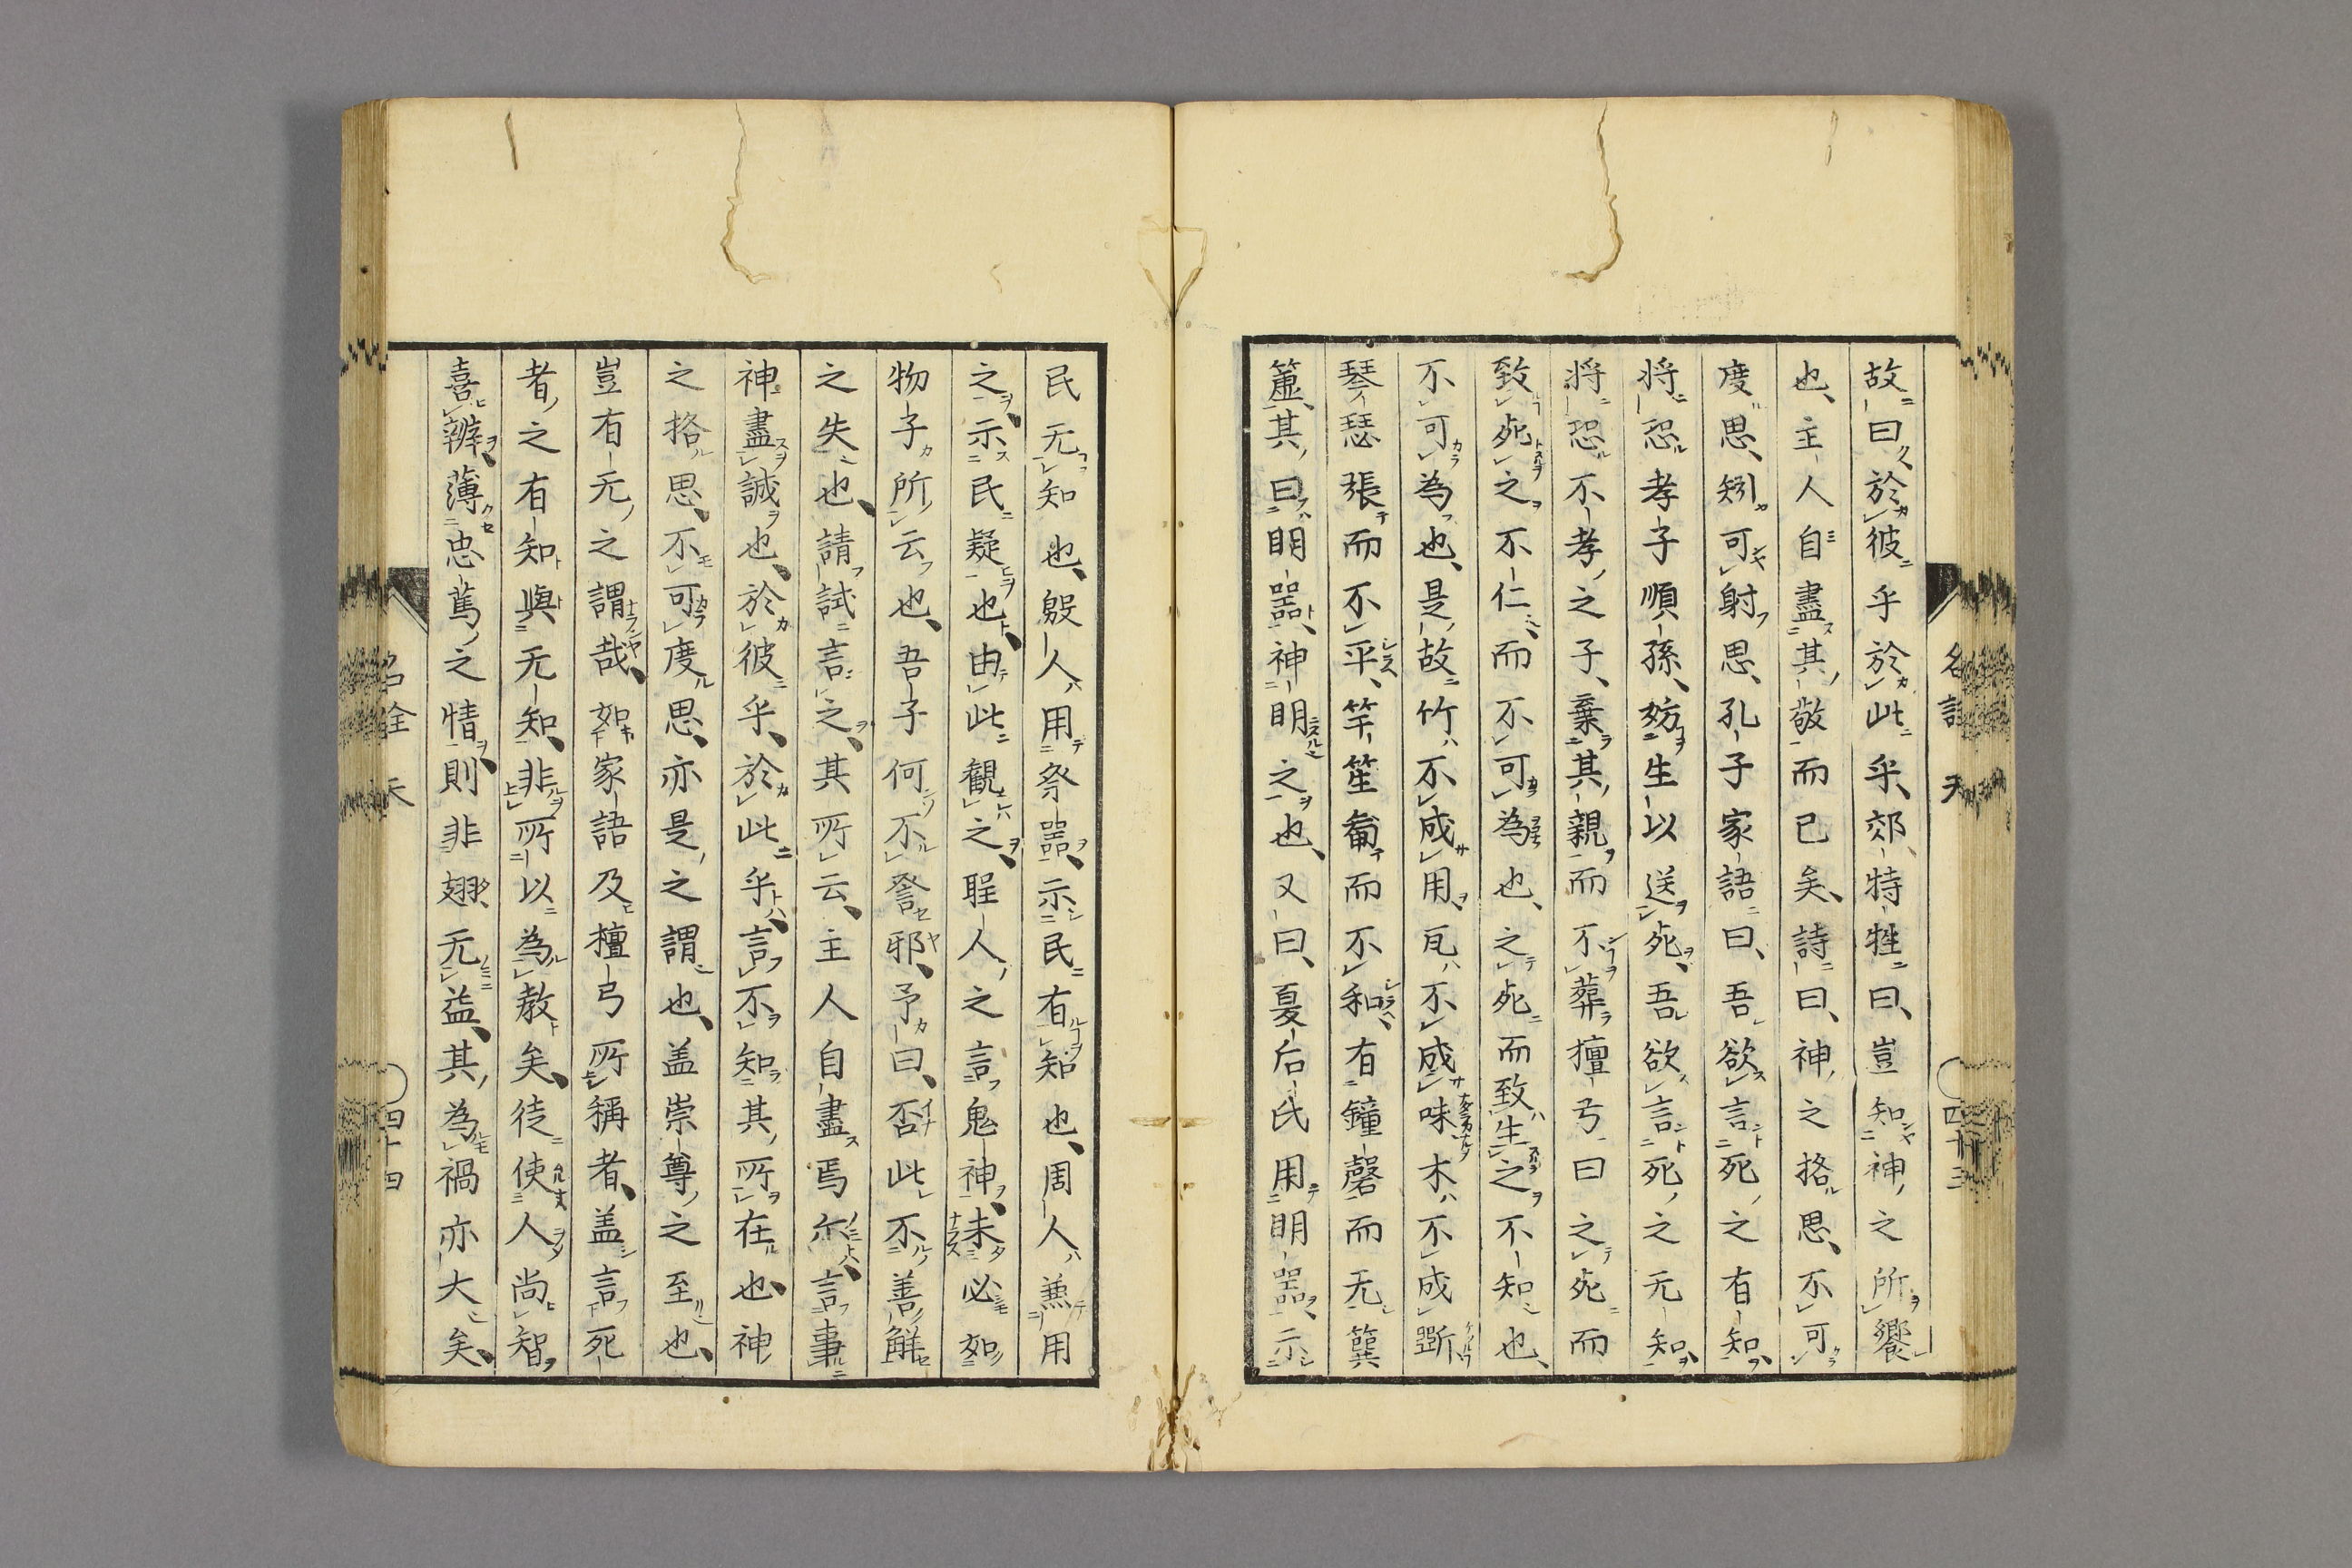 故曰於彼乎於此乎、郊特牲曰、豈知神之所饗
也、主人自盡其敬而已矣、詩曰、神之格思、不可
度思、矧可射思、孔子家語曰、吾欲言死之有知、
將恐孝子順孫、妨生以送死、吾欲言死之无知、
將恐不孝之子、棄其親而不葬檀弓曰之死而
致死之不仁、而不可為也、之死而致生之不知也、
不可為也、是故竹不成用、瓦不成味木不成斲
琴瑟張而不平、竽笙備而不和、有鐘磬而无簨
簴、其曰明器、神明之也、又曰、夏后氏用明器、示
民无知也、殷人用祭器、示民有知也、周人兼用
之、示民疑也、由此觀之、聖人之言鬼神、未必如
物子所云也、吾子何不詧邪、予曰、否此不善解
之失也、請試言之、其所云、主人自盡焉尒、言事
神盡誠也、於彼乎、於此乎、言不知其所在也、神
之格思、不可度思、亦是之謂也、盖崇尊之至也、
豈有无之謂哉、如家語及檀弓所稱者、盖言死
者之有知與无知、非所以為教矣、徒使人尚智
喜辨、薄忠篤之情、則非翅无益、其為禍亦大矣、
名詮 天
四十三
名詮 天
四十四